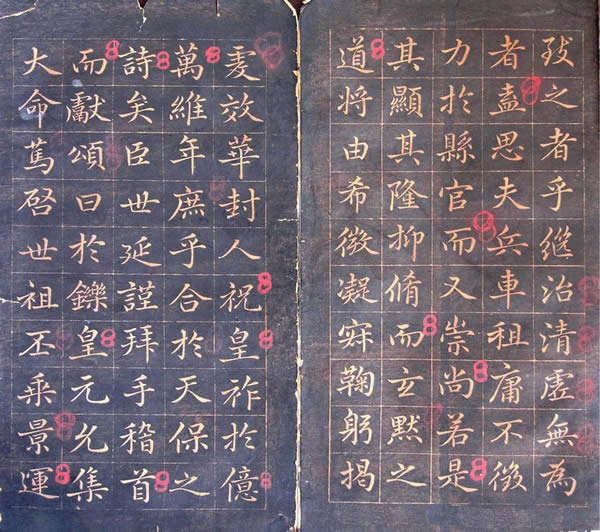 致之者乎继治清虛無為
者盍思夫兵車租庸不徵
力於縣官而又崇尚若是
其顯其隆抑脩而玄默之
道将由希微凝寂鞠躬揭
虔效華封人祝皇祚於億
萬維年庶乎合於天保之
詩矣臣世延謹拜手稽首
而獻頌曰於鑠皇元允集
大命篤啓世祖丕乘景運